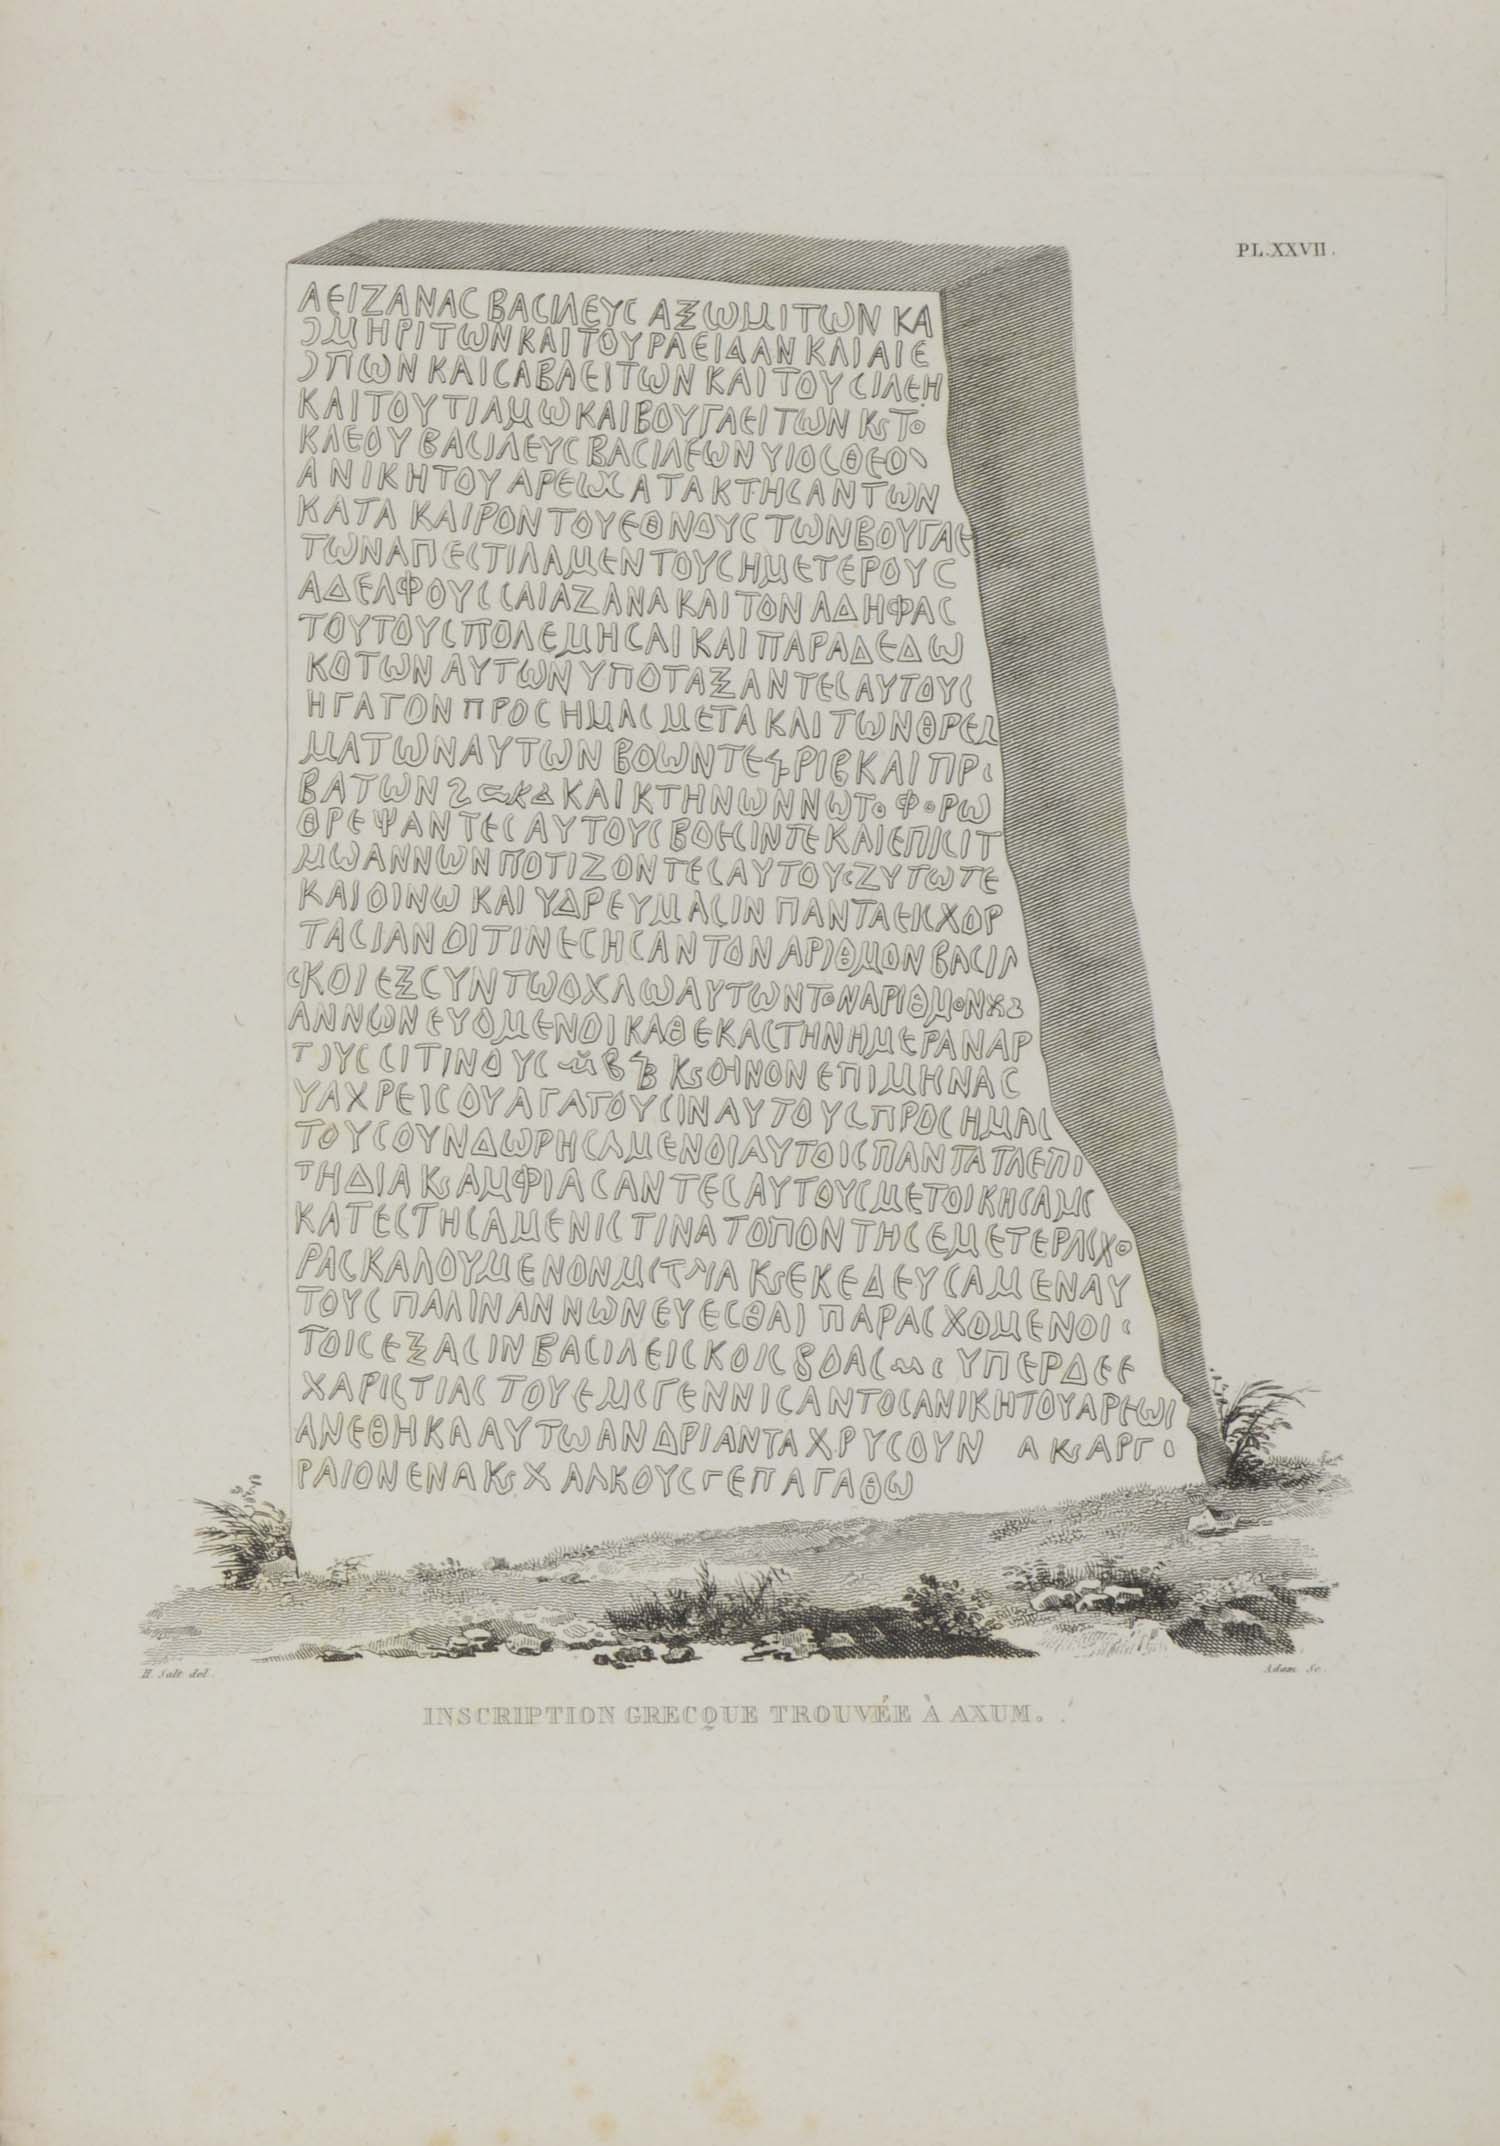 PL.XXVII.
ΑΕΙΖΑΝΑϹ ΒΑϹΙΛΕΥϹ ΑΞΩΜΙΤΩΝ ΚΑ
ϽΜΗΡΙΤΩΝ ΚΑΙ ΤΟΥ ΡΑΕΙΔΑΝ ΚΑΙ ΑΙΕ
ϽΠΩΝ ΚΑΙ ϹΑΒΑΕΙΤΩΝ ΚΑΙ ΤΟΥ ϹΙΛΕΗ
ΚΑΙ ΤΟΥ ΤΙΑΜΩ ΚΑΙ ΒΟΥΓΑΕΙΤΩΝ Κϛ ΤΟ
ΚΛΕΟΥ ΒΑϹΙΛΕΥϹ ΒΑϹΙΛΕΩΝ ΥΙΟϹ ΘΕΟ
ΑΝΙΚΗΤΟΥ ΑΡΕΩϹ ΑΤΑΚΤΗϹΑΝΤΩΝ
ΚΑΤΑ ΚΑΙΡΟΝ ΤΟΥ ΕΘΝΟΥϹ ΤΩΝ ΒΟΥΓΑΕ
ΤΩΝ ΑΠΕϹΤΙΛΑΜΕΝ ΤΟΥϹ ΗΜΕΤΕΡΟΥϹ
ΑΔΕΛΦΟΥϹ ϹΑΙΑΖΑΝΑ ΚΑΙ ΤΟΝ ΑΔΗΦΑϹ
ΤΟΥΤΟΥϹ ΠΟΛΕΜΗϹΑΙ ΚΑΙ ΠΑΡΑΔΕΔΩ
ΚΟΤΩΝ ΑΥΤΩΝ ΥΠΟΤΑΞΑΝΤΕϹ ΑΥΤΟΥϹ
ΗΓΑΓΟΝ ΠΡΟϹ ΗΜΑϹ ΜΕΤΑ ΚΑΙ ΤΩΝ ΘΡΕΜ
ΜΑΤΩΝ ΑΥΤΩΝ ΒΟΩΝΤΕ ΡΙΒ ΚΑΙ ΠΡ
ΒΑΤΩΝ ΚΑΙ ΚΤΗΝΩΝ ΝΩΤΟΦΟΡΩ
ΘΡΕΨΑΝΤΕϹ ΑΥΤΟΥϹ ΒΟΕϹΙΝ ΤΕ ΚΑΙ ΕΠΙϹΙΤ
ΜΩ ΑΝΝΩΝ ΠΟΤΙΖΟΝΤΕϹ ΑΥΤΟΥϹ ΖΥΤΩ ΤΕ
ΚΑΙ ΟΙΝΩ ΚΑΙ ΥΔΡΕΥΜΑϹΙΝ ΠΑΝΤΑ ΕΙϹ ΧΟΡ
ΤΑϹΙΑΝ ΟΙΤΙΝΕϹ ΗϹΑΝ ΤΟΝ ΑΡΙΘΜΟΝ ΒΑϹΙΛ
ϹΚΟΙ ΕΞ ϹΥΝ ΤΩ ΟΧΛΩ ΑΥΤΩΝ ΤΟΝ ΑΡΙΘΜΟΝ
ΑΝΝΩΝΕΥΟΜΕΝΟΙ ΚΑΘ ΕΚΑϹΤΗΝ ΗΜΕΡΑΝ ΑΡ
ΤϽΥϹ ϹΙΤΙΝΟΥϹ Κϛ ΟΗΝΟΝ ΕΠΙ ΜΗΝΑϹ
ΥΑΧΡΕΙϹ ΟΥ ΑΓΑΓΟΥϹΙΝ ΑΥΤΟΥϹ ΠΡΟϹ ΗΜΑϹ
ΤΟΥϹ ΟΥΝ ΔΩΡΗϹΑΜΕΝΟΙ ΑΥΤΟΙϹ ΠΑΝΤΑ ΤΑ ΕΠΙ
ΤΗΔΙΑ Κϛ ΑΜΦΙΑϹΑΝΤΕϹ ΑΥΤΟΥϹ ΜΕΤΟΙΚΗϹΑΜϹ
ΚΑΤΕϹΤΗϹΑΜΕΝ ΙϹ ΤΙΝΑ ΤΟΠΟΝ ΤΗϹ ΕΜΕΤΕΡΑϹ ΧΟ
ΡΑϹ ΚΑΛΟΥΜΕΝΟΝ Κϛ ΕΚΕΔΕΥϹΑΜΕΝ ΑΥ
ΤΟΥϹ ΠΑΛΙΝ ΑΝΝΩΝΕΥΕϹΘΑΙ ΠΑΡΑϹΧΟΜΕΝΟΙ
ΤΟΙϹ ΕΞΑϹΙΝ ΒΑϹΙΛΕΙϹΚΟΙϹ ΥΠΕΡ ΔΕ Ε
ΧΑΡΙϹΤΙΑϹ ΤΟΥ ΕΜϹ ΓΕΝΝΙϹΑΝΤΟϹ ΑΝΙΚΗΤΟΥ ΑΡΕΩϹ
ΑΝΕΘΗΚΑ ΑΥΤΩ ΑΝΔΡΙΑΝΤΑ ΧΡΥϹΟΥΝ Α Κϛ ΑΡΓΟ
ΡΑΙΟΝ ΕΝΑ Κϛ ΧΑΛΚΟΥϹ Γ ΕΠ ΑΓΑΘΩ
H. Salt del.
Adam Sc.
INSCRIPTION GRECQUE TROUVÉE À AXUM.